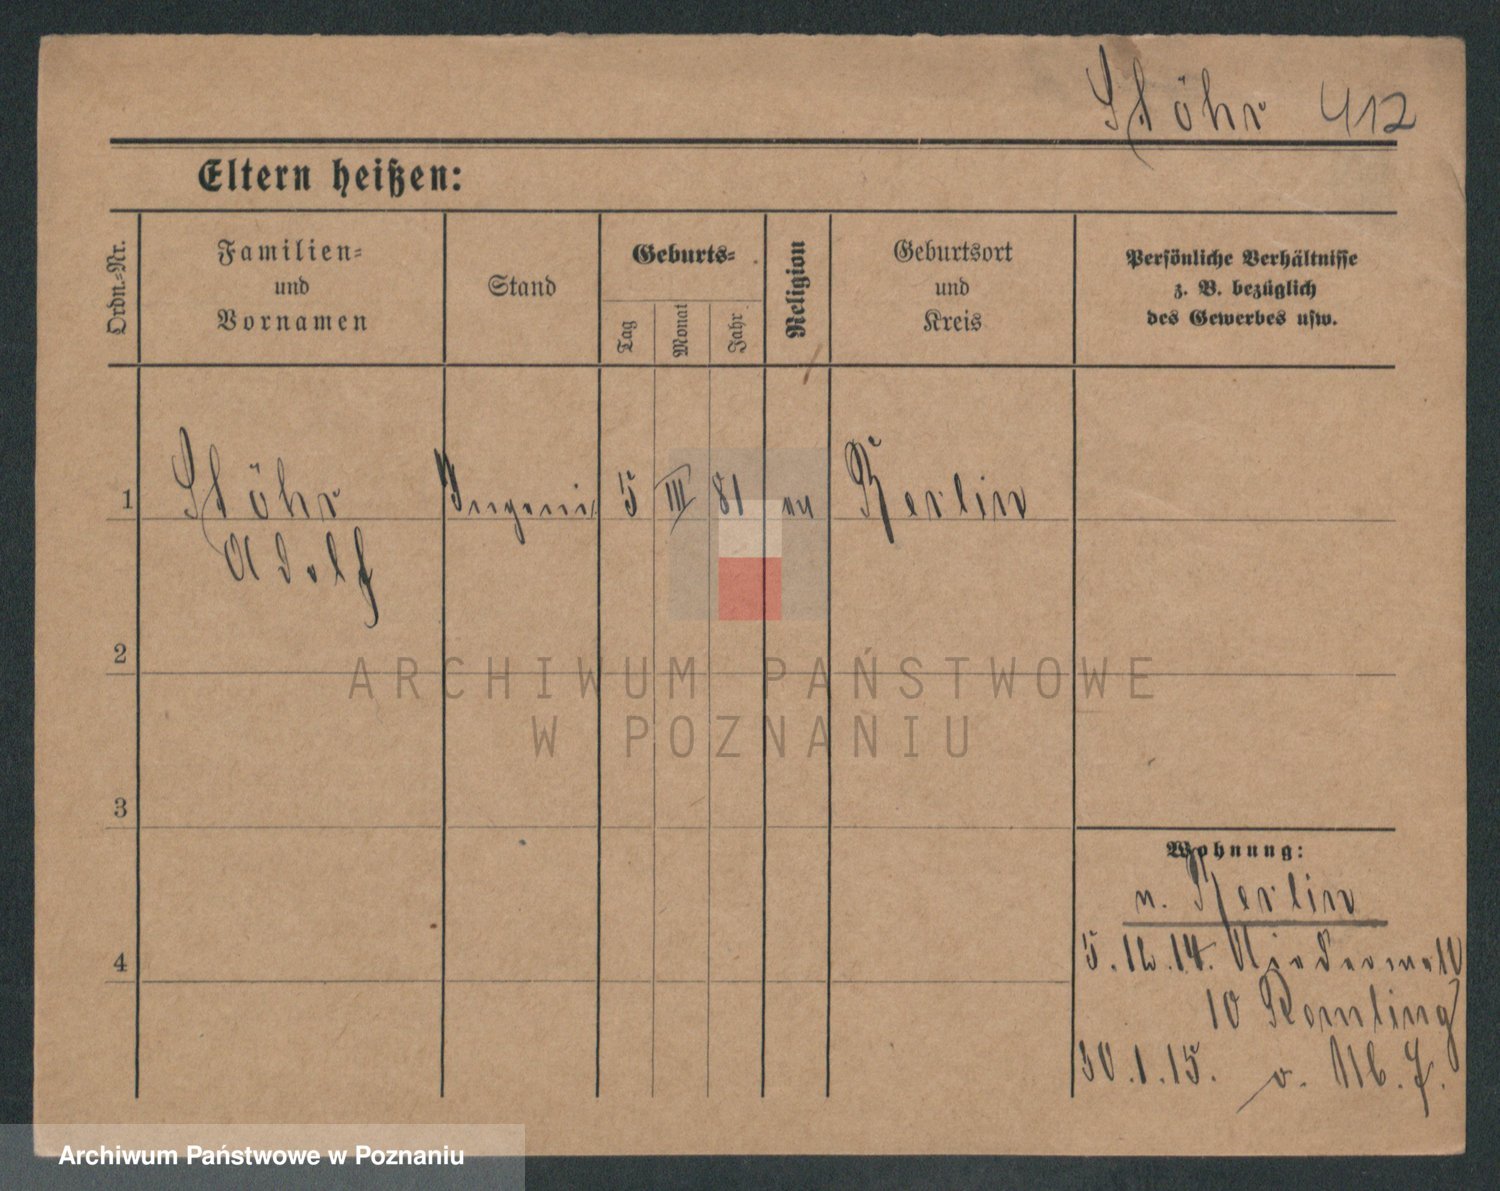 Stöhr 412
Eltern heißen:
Ordn.-Nr.
Familien-
und
Vornamen
Stand
Geburts-
Tag
Monat
Jahr
Religion
Geburtsort
und
Kreis
Persönliche Verhältnisse
z. B. bezüglich
des Gewerbes usw.
1 Stöhr Ingeni 5 III 81 ev Berlin
Adolf
2
3
4
ARCHIWUM PAŃSTWOWE
W POZNANIU
Wohnung:
n. Berlin
5.12.14. Niederwall
10
30.1.15. v.
Archiwum Państwowe w Poznaniu